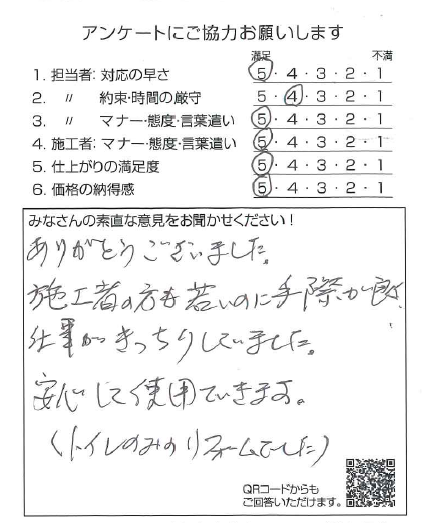 アンケートにご協力お願いします
満足 不満
1. 担当者: 対応の早さ 5・4・3・2・1
2. 〃 約束・時間の厳守 5・4・3・2・1
3. 〃 マナー・態度・言葉遣い 5・4・3・2・1
4. 施工者: マナー・態度・言葉遣い 5・4・3・2・1
5. 仕上がりの満足度 5・4・3・2・1
6. 価格の納得感 5・4・3・2・1
みなさんの素直な意見をお聞かせください！
ありがとうございました。
施工者の方も若いのに手際が良く、
仕事がきっちりしていました。
安心して使用できます。
(トイレのみのリフォームでした)
QRコードからも
ご回答いただけます。